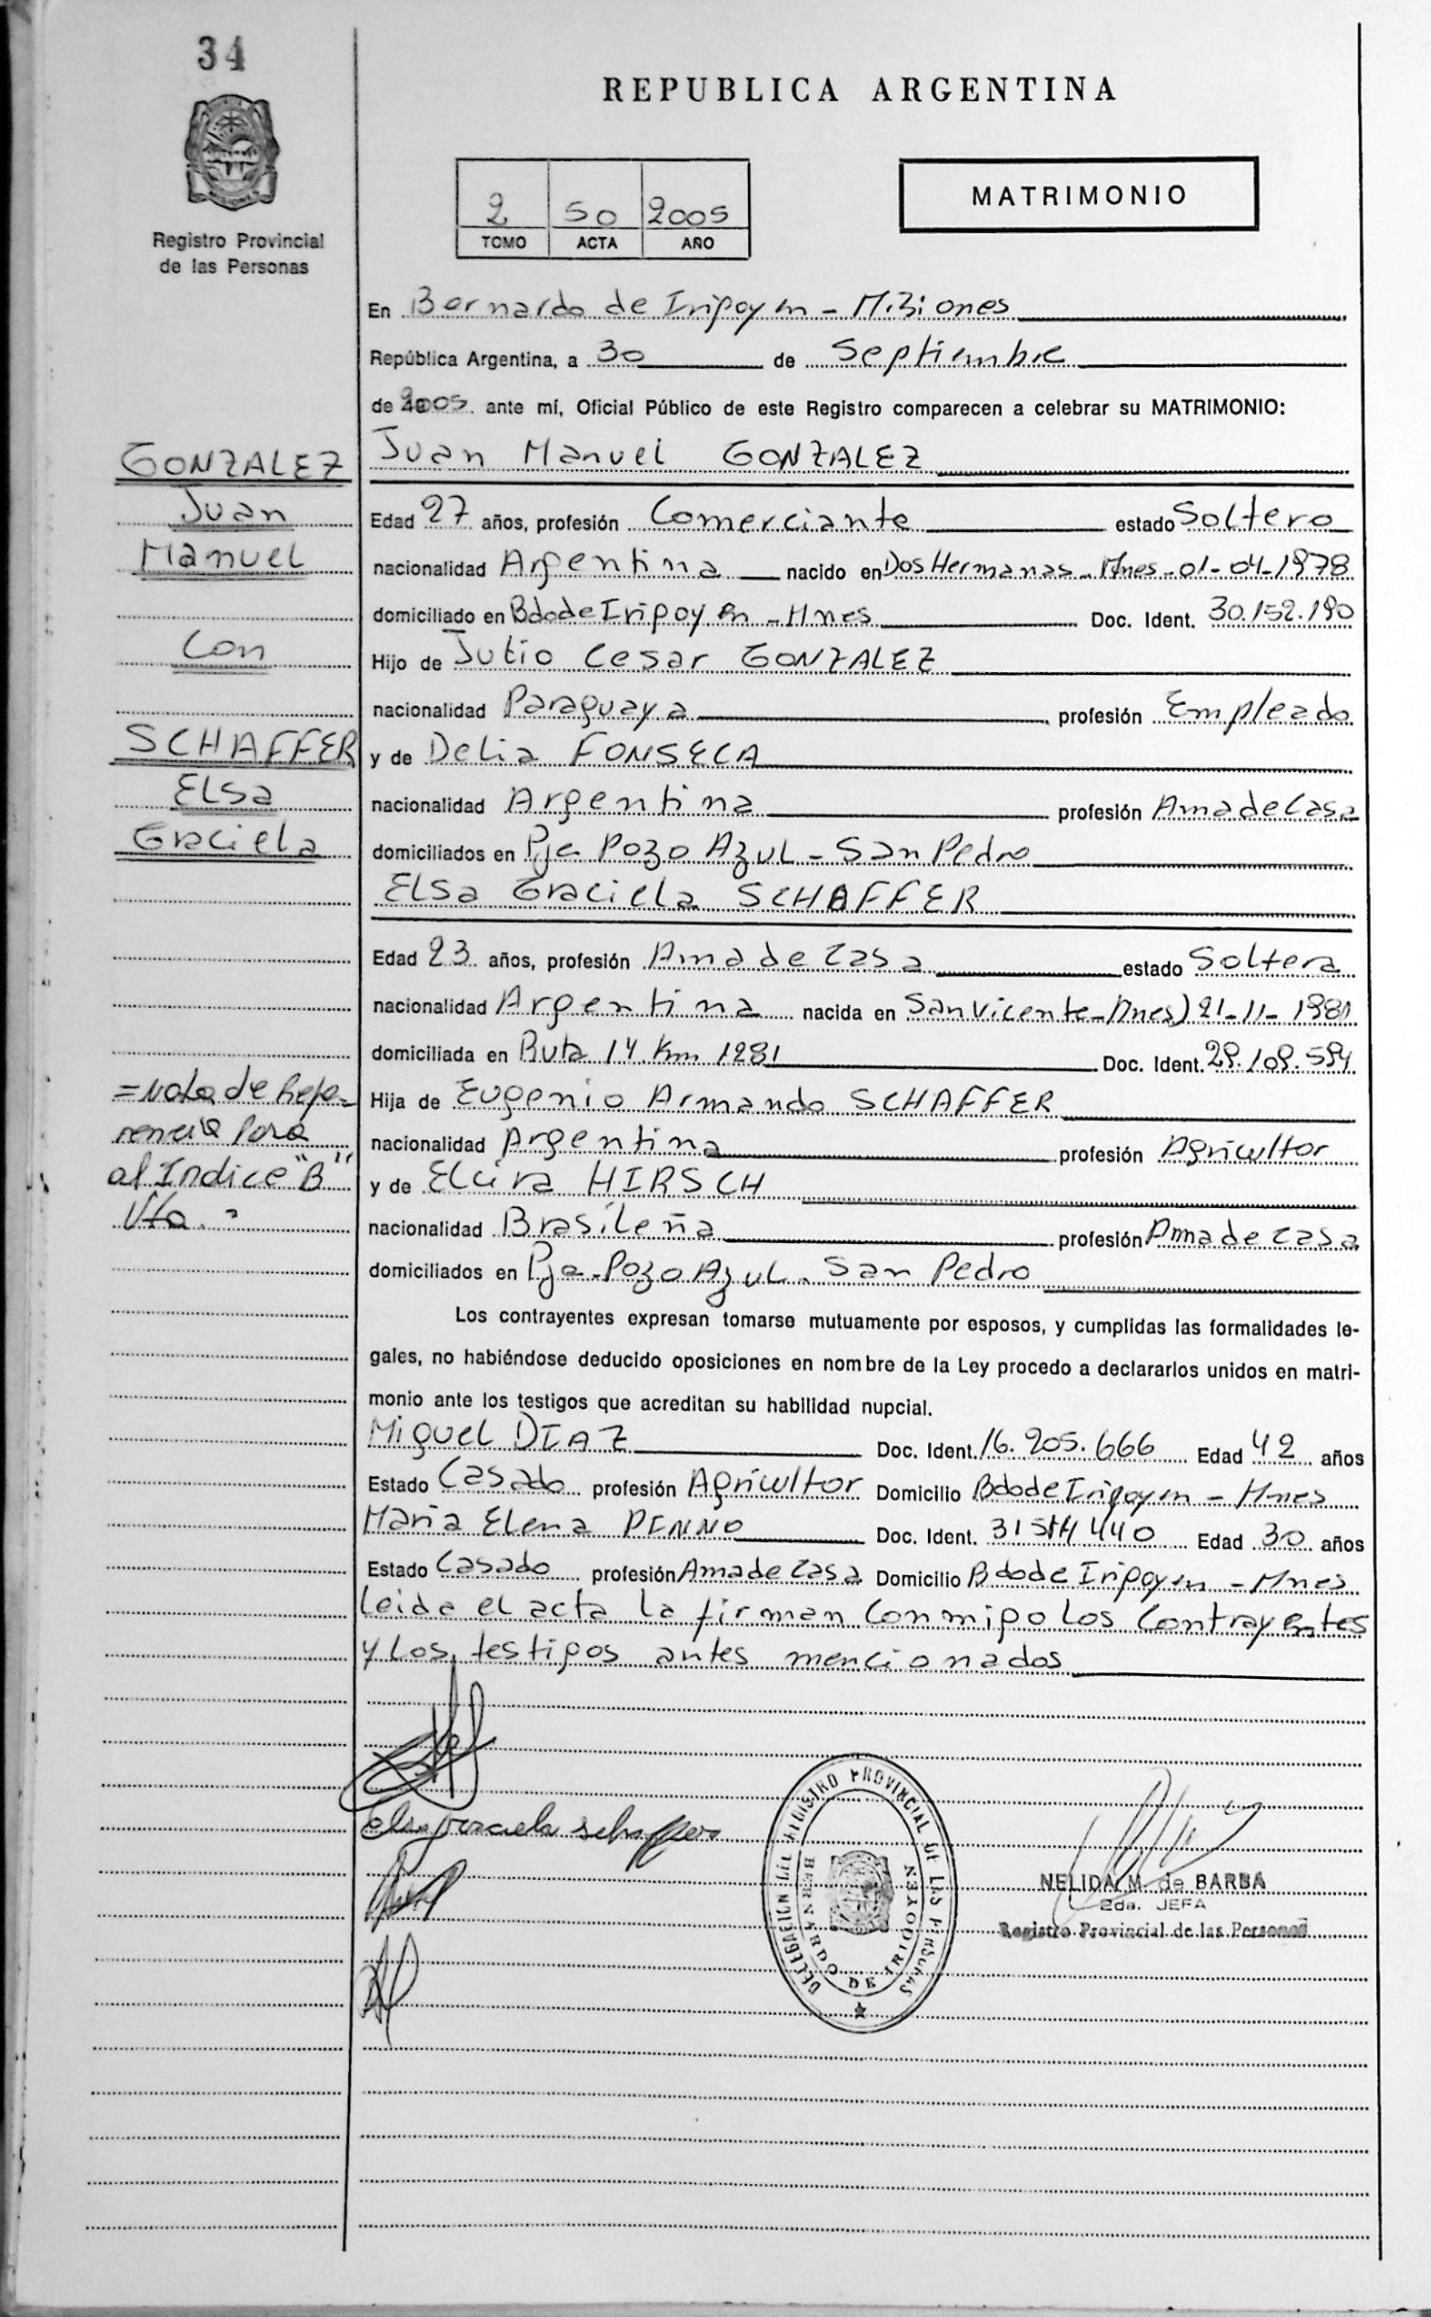 34
REPUBLICA ARGENTINA
MATRIMONIO
2 50 2005
TOMO ACTA AÑO
Registro Provincial
de las Personas
En Bernardo de Irigoyen - Misiones
República Argentina, a 30 de Septiembre
de 2005 ante mí, Oficial Público de este Registro comparecen a celebrar su MATRIMONIO:
GONZALEZ
Juan
Manuel
Con
SCHAFFER
Elsa
Graciela
Juan Manuel GONZALEZ
Edad 27 años, profesión Comerciante estado Soltero
nacionalidad Argentina nacido en Dos Hermanas - Mnes - 01-04-1978
domiciliado en Bdo de Irigoyen - Mnes Doc. Ident. 30.152.190
Hijo de Julio Cesar GONZALEZ
nacionalidad Paraguaya profesión Empleado
y de Delia FONSECA
nacionalidad Argentina profesión Ama de Casa
domiciliados en Pje Pozo Azul - San Pedro
Elsa Graciela SCHAFFER
Edad 23 años, profesión Ama de Casa estado Soltera
nacionalidad Argentina nacida en San Vicente - Mnes) 21-11-1981
domiciliada en Ruta 14 Km 1281 Doc. Ident. 29.109.594
Hija de Eugenio Armando SCHAFFER
nacionalidad Argentina profesión Agricultor
y de Elvira HIRSCH
nacionalidad Brasileña profesión Ama de Casa
domiciliados en Pje. Pozo Azul - San Pedro
= Nota de Refe-
rencia Para
al Indice "B"
Vta. =
Los contrayentes expresan tomarse mutuamente por esposos, y cumplidas las formalidades le-
gales, no habiéndose deducido oposiciones en nombre de la Ley procedo a declararlos unidos en matri-
monio ante los testigos que acreditan su habilidad nupcial.
Miguel DIAZ Doc. Ident. 16.205.666 Edad 42 años
Estado Casado profesión Agricultor Domicilio Bdo de Irigoyen - Mnes
Maria Elena PENNO Doc. Ident. 440 Edad 30 años
Estado Casado profesión Ama de Casa Domicilio Bdo de Irigoyen - Mnes
Leida el acta la firman Conmigo Los Contrayentes
y Los testigos antes mencionados
elsa graciela schaffer
DELEGACION DEL REGISTRO PROVINCIAL DE LAS PERSONAS
BERNARDO DE IRIGOYEN
NELIDA M. de BARBA
2da. JEFA
Registro Provincial de las Personas